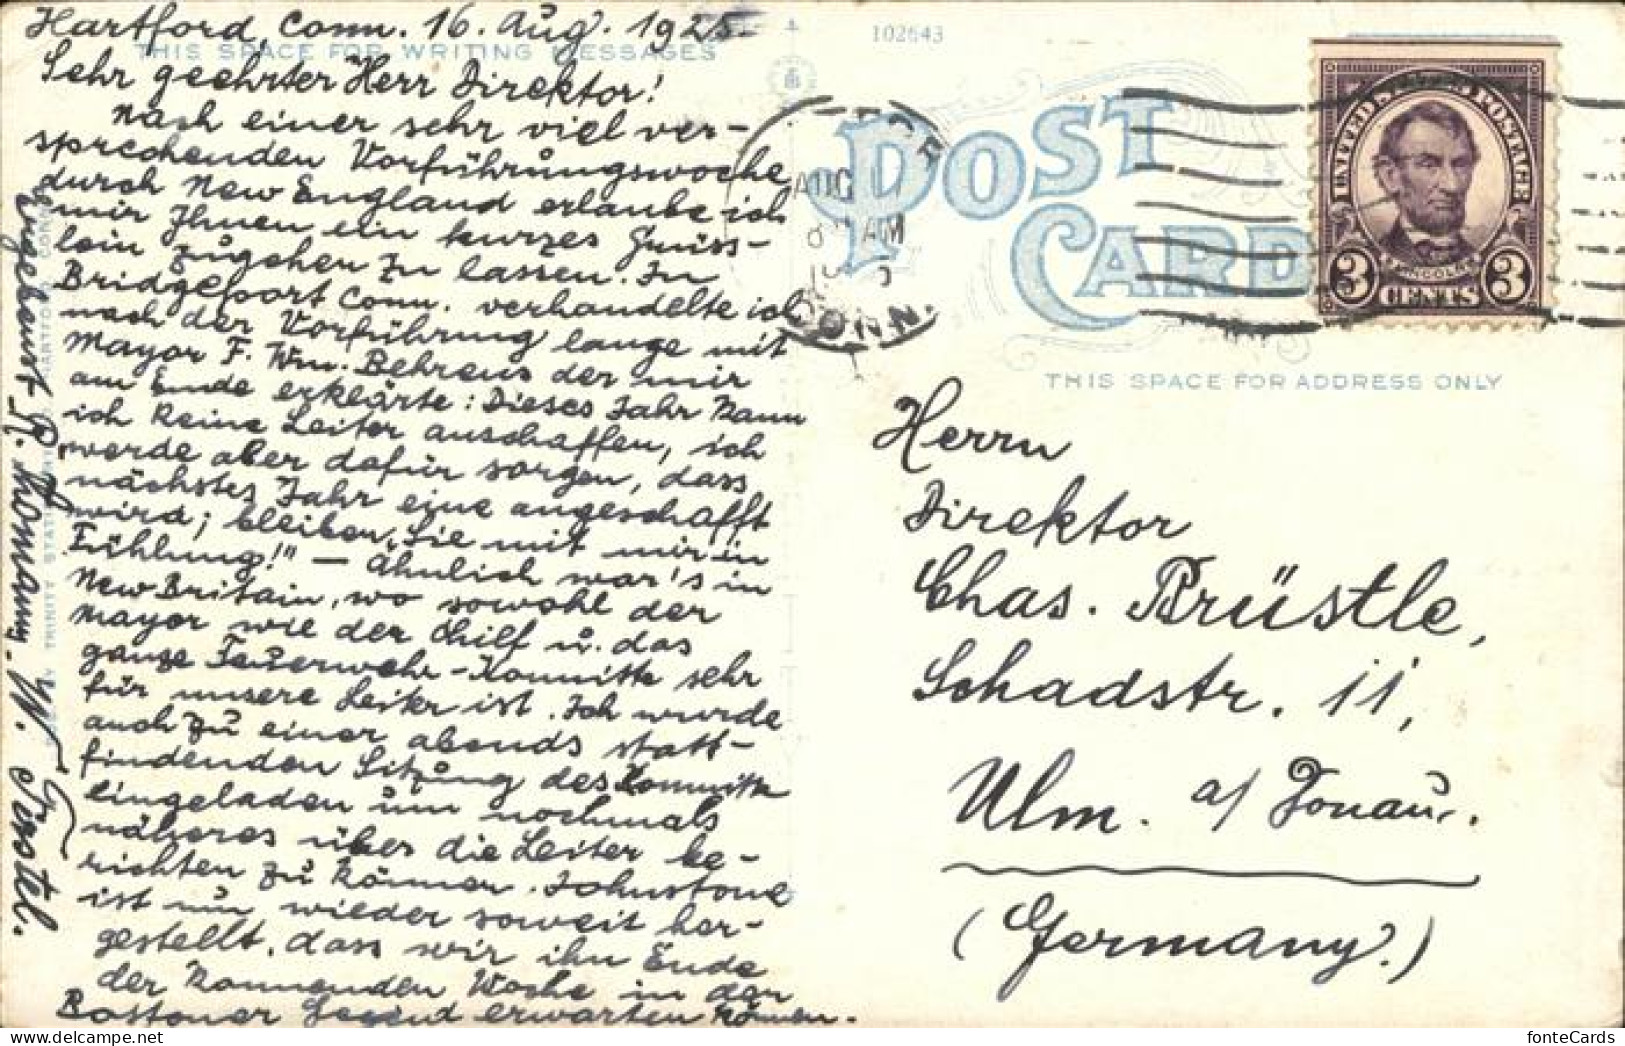 Hartford, Conn. 16. Aug. 1925.
THIS SPACE FOR WRITING MESSAGES
Sehr geehrter Herr Direktor!
Nach einer sehr viel ver-
sprechenden Vorführungswoche
durch New England erlaube ich
mir Ihnen ein kurzes Grüss-
lein zugehen zu lassen. In
Bridgeport Conn. verhandelte ich
nach der Vorführung lange mit
Mayor F. Wm. Behrens der mir
am Ende erklärte: Dieses Jahr kann
ich keine Leiter anschaffen, ich
werde aber dafür sorgen, dass
nächstes Jahr eine angeschafft
wird; bleiben Sie mit mir in
Fühlung!" — Ähnlich war's in
New Britain, wo sowohl der
Mayor wie der Chief u. das
ganze Feuerwehr-Komitte sehr
für unsere Leiter ist. Ich wurde
auch zu einer abends statt-
findenden Sitzung des Kommitte
eingeladen um nochmals
näheres über die Leiter be-
richten zu können. Johnstone
ist nun wieder soweit her-
gestellt, dass wir ihn Ende
der kommenden Woche in der
Bostoner Gegend erwarten können.
Ergebenst
102643
POST
CARD
AUG
AM
CONN.
UNITED POSTAGE
LINCOLN
3 CENTS 3
THIS SPACE FOR ADDRESS ONLY
Herrn
Direktor
Chas. Brüstle,
Schadstr. 11,
Ulm. a/ Donau.
(Germany.)
fonteCards